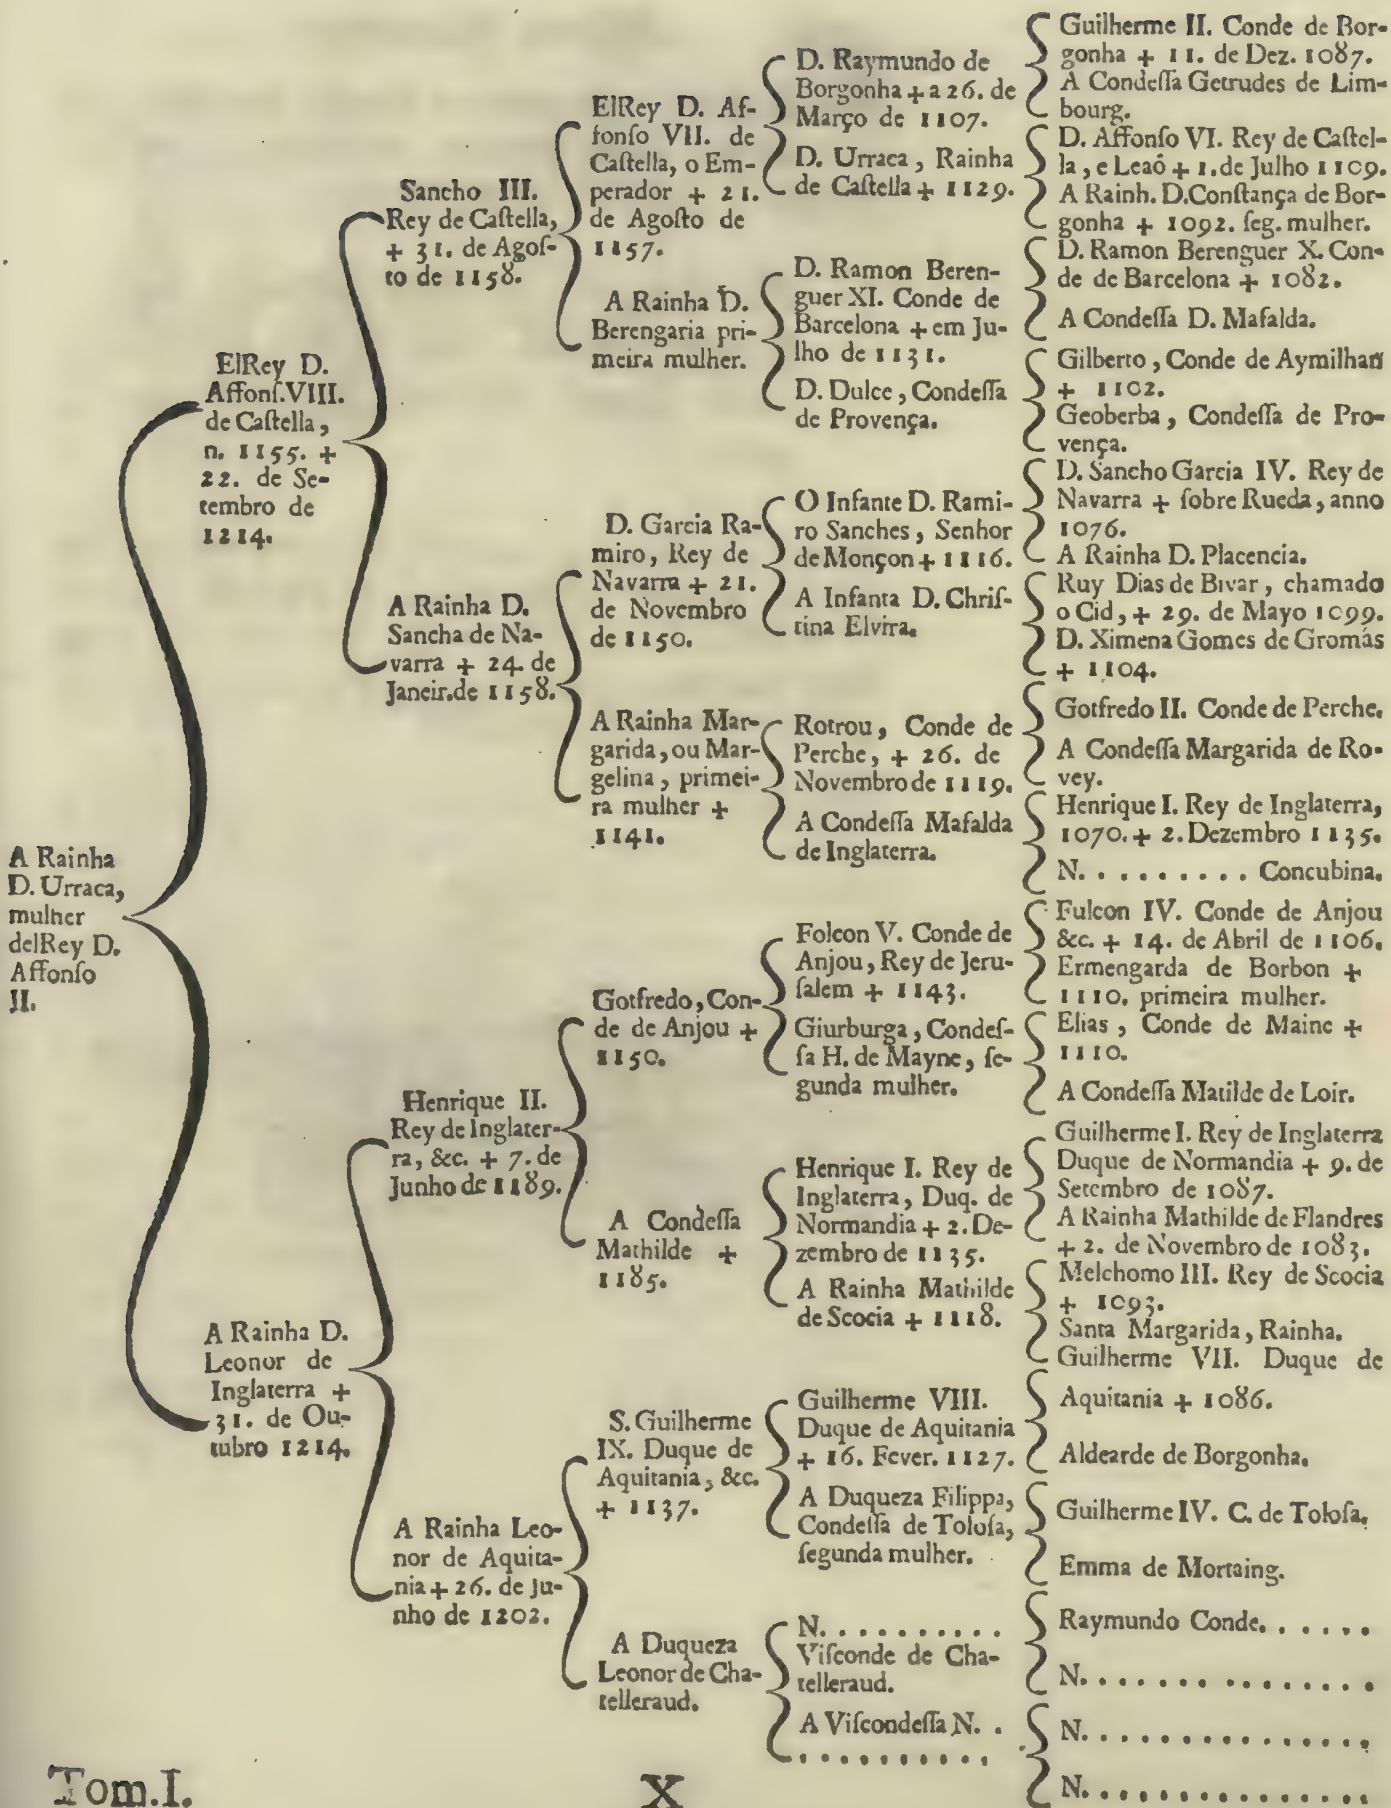 A Rainha
D. Urraca,
mulher
delRey D.
Affonſo
II.
ElRey D.
Affonſ.VIII.
de Caſtella,
n. 1155. +
22. de Se-
tembro de
1214.
A Rainha D.
Leonor de
Inglaterra +
31. de Ou-
tubro 1214.
Sancho III.
Rey de Caſtella,
+ 31. de Agoſ-
to de 1158.
A Rainha D.
Sancha de Na-
varra + 24. de
Janeir.de 1158.
Henrique II.
Rey de Inglater-
ra, &c. + 7. de
Junho de 1189.
A Rainha Leo-
nor de Aquita-
nia + 26. de Ju-
nho de 1202.
ElRey D. Af-
fonſo VII. de
Caſtella, o Em-
perador + 21.
de Agoſto de
1157.
A Rainha D.
Berengaria pri-
meira mulher.
D. Garcia Ra-
miro, Rey de
Navarra + 21.
de Novembro
de 1150.
A Rainha Mar-
garida, ou Mar-
gelina, primei-
ra mulher +
1141.
Gotfredo, Con-
de de Anjou +
1150.
A Condeſſa
Mathilde +
1185.
S. Guilherme
IX. Duque de
Aquitania, &c.
+ 1137.
A Duqueza
Leonor de Cha-
telleraud.
D. Raymundo de
Borgonha + a 26. de
Março de 1107.
D. Urraca, Rainha
de Caſtella + 1129.
D. Ramon Beren-
guer XI. Conde de
Barcelona + em Ju-
lho de 1131.
D. Dulce, Condeſſa
de Provença.
O Infante D. Rami-
ro Sanches, Senhor
de Monçon + 1116.
A Infanta D. Chriſ-
tina Elvira.
Rotrou, Conde de
Perche, + 26. de
Novembro de 1119.
A Condeſſa Mafalda
de Inglaterra.
Folcon V. Conde de
Anjou, Rey de Jeru-
ſalem + 1143.
Giurburga, Condeſ-
ſa H. de Mayne, ſe-
gunda mulher.
Henrique I. Rey de
Inglaterra, Duq. de
Normandia + 2. De-
zembro de 1135.
A Rainha Mathilde
de Scocia + 1118.
Guilherme VIII.
Duque de Aquitania
+ 16. Fever. 1127.
A Duqueza Filippa,
Condeſſa de Toloſa,
ſegunda mulher.
N. . . . . . . . . . .
Viſconde de Cha-
telleraud.
A Viſcondeſſa N. .
. . . . . . . . . . .
Guilherme II. Conde de Bor-
gonha + 11. de Dez. 1087.
A Condeſſa Getrudes de Lim-
bourg.
D. Affonſo VI. Rey de Caſtel-
la, e Leaõ + 1. de Julho 1109.
A Rainh. D.Conſtança de Bor-
gonha + 1092. ſeg. mulher.
D. Ramon Berenguer X. Con-
de de Barcelona + 1082.
A Condeſſa D. Mafalda.
Gilberto, Conde de Aymilhan
+ 1102.
Geoberba, Condeſſa de Pro-
vença.
D. Sancho Garcia IV. Rey de
Navarra + ſobre Rueda, anno
1076.
A Rainha D. Placencia.
Ruy Dias de Bivar, chamado
o Cid, + 29. de Mayo 1099.
D. Ximena Gomes de Gromás
+ 1104.
Gotfredo II. Conde de Perche.
A Condeſſa Margarida de Ro-
vey.
Henrique I. Rey de Inglaterra,
1070. + 2. Dezembro 1135.
N. . . . . . . . . . Concubina.
Fulcon IV. Conde de Anjou
&c. + 14. de Abril de 1106.
Ermengarda de Borbon +
1110. primeira mulher.
Elias, Conde de Maine +
1110.
A Condeſſa Matilde de Loir.
Guilherme I. Rey de Inglaterra
Duque de Normandia + 9. de
Setembro de 1087.
A Rainha Mathilde de Flandres
+ 2. de Novembro de 1083.
Melchomo III. Rey de Scocia
+ 1093.
Santa Margarida, Rainha.
Guilherme VII. Duque de
Aquitania + 1086.
Aldearde de Borgonha.
Guilherme IV. C. de Toloſa.
Emma de Mortaing.
Raymundo Conde. . . . . .
N. . . . . . . . . . . . . . .
N. . . . . . . . . . . . . . .
N. . . . . . . . . . . . . . .
Tom.I.
X